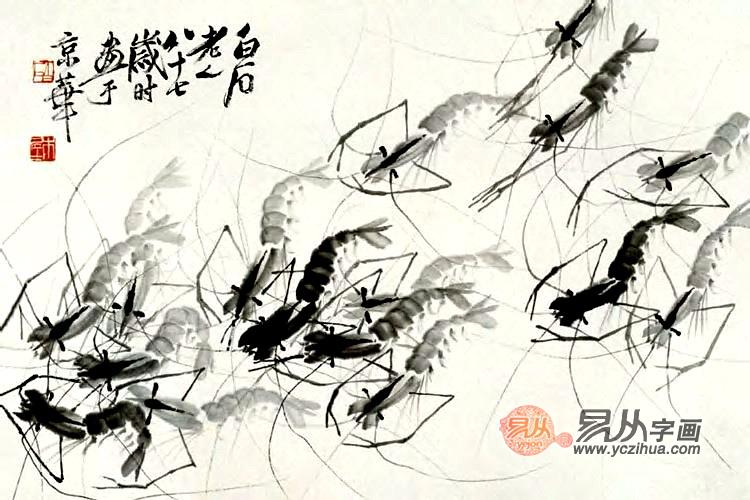 白石
老人
八十七
歲时
画于
京華
易从
yicong
易从字画
www.yczihua.com